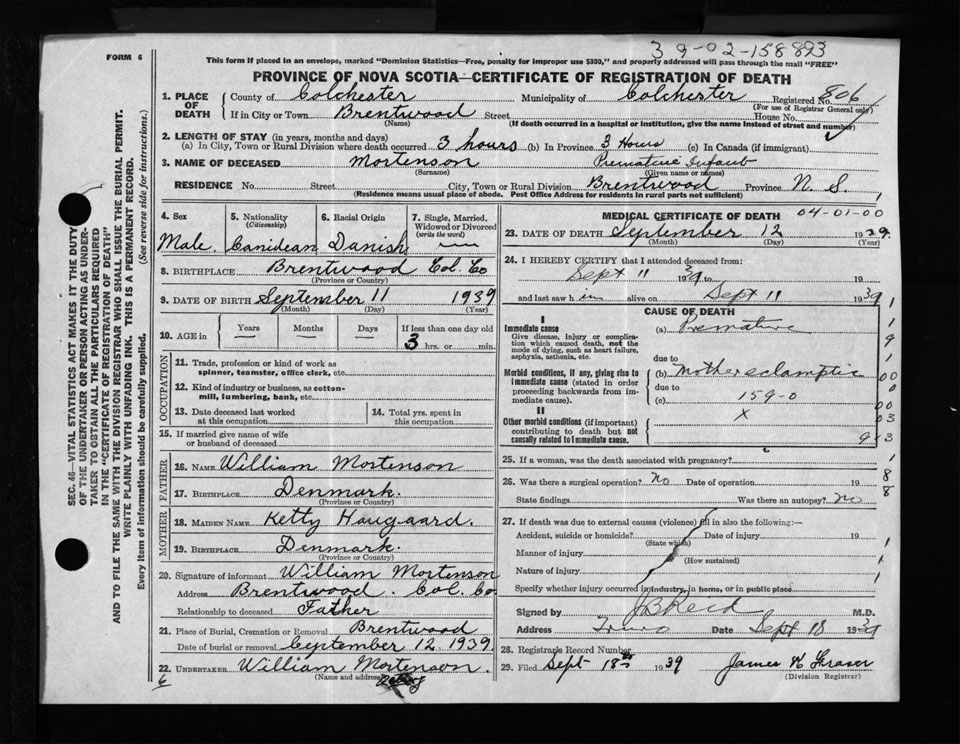 39-02-158823
FORM 6
This form if placed in an envelope, marked "Dominion Statistics—Free, penalty for improper use $300," and properly addressed will pass through the mail "FREE"
PROVINCE OF NOVA SCOTIA—CERTIFICATE OF REGISTRATION OF DEATH
SEC. 46—VITAL STATISTICS ACT MAKES IT THE DUTY
OF THE UNDERTAKER OR PERSON ACTING AS UNDER-
TAKER TO OBTAIN ALL THE PARTICULARS REQUIRED
IN THE "CERTIFICATE OF REGISTRATION OF DEATH"
AND TO FILE THE SAME WITH THE DIVISION REGISTRAR WHO SHALL ISSUE THE BURIAL PERMIT.
WRITE PLAINLY WITH UNFADING INK. THIS IS A PERMANENT RECORD.
Every item of information should be carefully supplied. (See reverse side for instructions.)
1. PLACE OF DEATH
County of Colchester Municipality of Colchester Registered No. 806
(For use of Registrar General only)
If in City or Town Brentwood Street House No.
(Name) (If death occurred in a hospital or institution, give the name instead of street and number)
2. LENGTH OF STAY (in years, months and days)
(a) In City, Town or Rural Division where death occurred 3 hours (b) In Province 3 Hours (c) In Canada (if immigrant)
3. NAME OF DECEASED Mortenson Premature Infant
(Surname) (Given name or names)
RESIDENCE No. Street City, Town or Rural Division Brentwood Province N. S.
(Residence means usual place of abode. Post Office Address for residents in rural parts not sufficient)
4. Sex
Male.
5. Nationality
(Citizenship)
Canidean
6. Racial Origin
Danish
7. Single, Married,
Widowed or Divorced
(write the word)
8. BIRTHPLACE Brentwood Col. Co
(Province or Country)
9. DATE OF BIRTH September 11 1939
(Month) (Day) (Year)
10. AGE in Years Months Days If less than one day old
3 hrs. or min.
OCCUPATION
11. Trade, profession or kind of work as
spinner, teamster, office clerk, etc.
12. Kind of industry or business, as cotton-
mill, lumbering, bank, etc.
13. Date deceased last worked
at this occupation
14. Total yrs. spent in
this occupation
15. If married give name of wife
or husband of deceased
FATHER
16. NAME William Mortenson
17. BIRTHPLACE Denmark.
(Province or Country)
MOTHER
18. MAIDEN NAME Ketty Haugaard.
19. BIRTHPLACE Denmark.
(Province or Country)
20. Signature of informant William Mortenson
Address Brentwood. Col. Co.
Relationship to deceased Father
21. Place of Burial, Cremation or Removal Brentwood
Date of burial or removal September 12, 1939.
22. UNDERTAKER William Mortenson.
(Name and address)
6
MEDICAL CERTIFICATE OF DEATH
04-01-00
23. DATE OF DEATH September 12 1939.
(Month) (Day) (Year)
24. I HEREBY CERTIFY that I attended deceased from:
Sept 11 1939 to 19
and last saw h im alive on Sept 11 1939
CAUSE OF DEATH
I
Immediate cause
Give disease, injury or complica-
tion which caused death, not the
mode of dying, such as heart failure,
asphyxia, asthenia, etc.
(a) Premature
due to
Morbid conditions, if any, giving rise to
immediate cause (stated in order
proceeding backwards from im-
mediate cause).
(b) Mother eclamptic
due to
(c) 159-0
II
Other morbid conditions (if important)
contributing to death but not
causally related to immediate cause.
X
25. If a woman, was the death associated with pregnancy?
26. Was there a surgical operation? No Date of operation 19
State findings Was there an autopsy? No
27. If death was due to external causes (violence) fill in also the following:—
Accident, suicide or homicide? Date of injury 19
(State which)
Manner of injury
(How sustained)
Nature of injury
Specify whether injury occurred in industry, in home, or in public place
Signed by J B Reid M.D.
Address Truro Date Sept 18 1939
28. Registrar's Record Number
29. Filed Sept 18th 1939 James K Fraser
(Division Registrar)